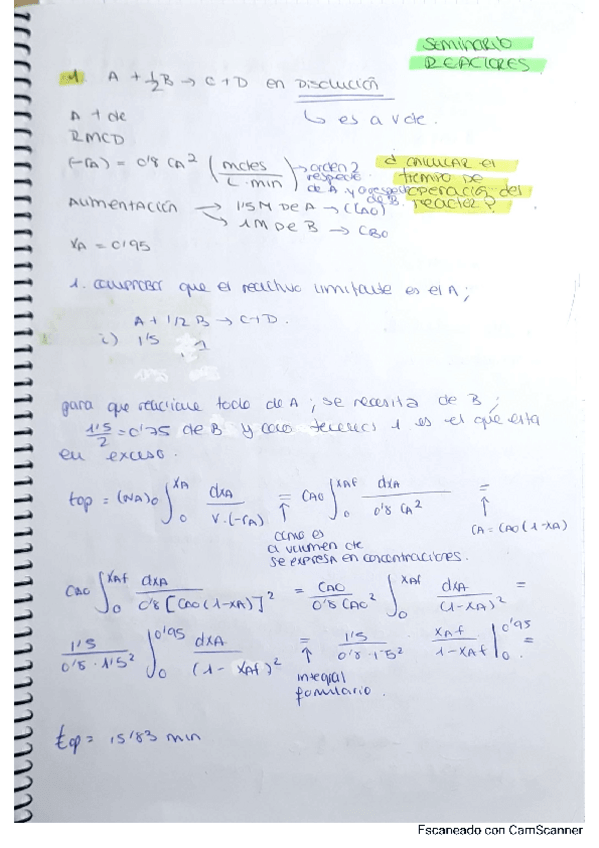 SEMINARIO
REACTORES
1 A + 1/2 B → C + D en DISOLUCIÓN
↳ es a V cte.
A T cte
RMCD
(-rA) = 0'8 CA² (moles / L·min) → orden 2 respecto de A y 0 respecto de B.
¿CALCULAR el tiempo de operación del reactor?
ALIMENTACIÓN → 1'5 M DE A → (CAO)
→ 1 M DE B → CBO
XA = 0'95
1. COMPROBAR que el reactivo limitante es el A;
A + 1/2 B → C + D.
i) 1'5 1
para que reaccione todo de A; se necesita de B;
1'5/2 = 0'75 de B y como tenemos 1 es el que esta
en exceso.
top = (NA)0 ∫0^XA dXA / V·(-rA) = CAO ∫0^XAf dXA / 0'8 CA² =
↑ como es a volumen cte se expresa en concentraciones.
↑ CA = CAO (1-XA)
CAO ∫0^XAf dXA / 0'8 [CAO (1-XA)]² = CAO / 0'8 CAO² ∫0^XAf dXA / (1-XA)² =
1'5 / 0'8 · 1'5² ∫0^0'95 dXA / (1-XAf)² = 1'5 / 0'8 · 1'5² XAf / 1-XAf |0^0'95 =
↑ integral
formulario.
top = 15'83 min
Escaneado con CamScanner